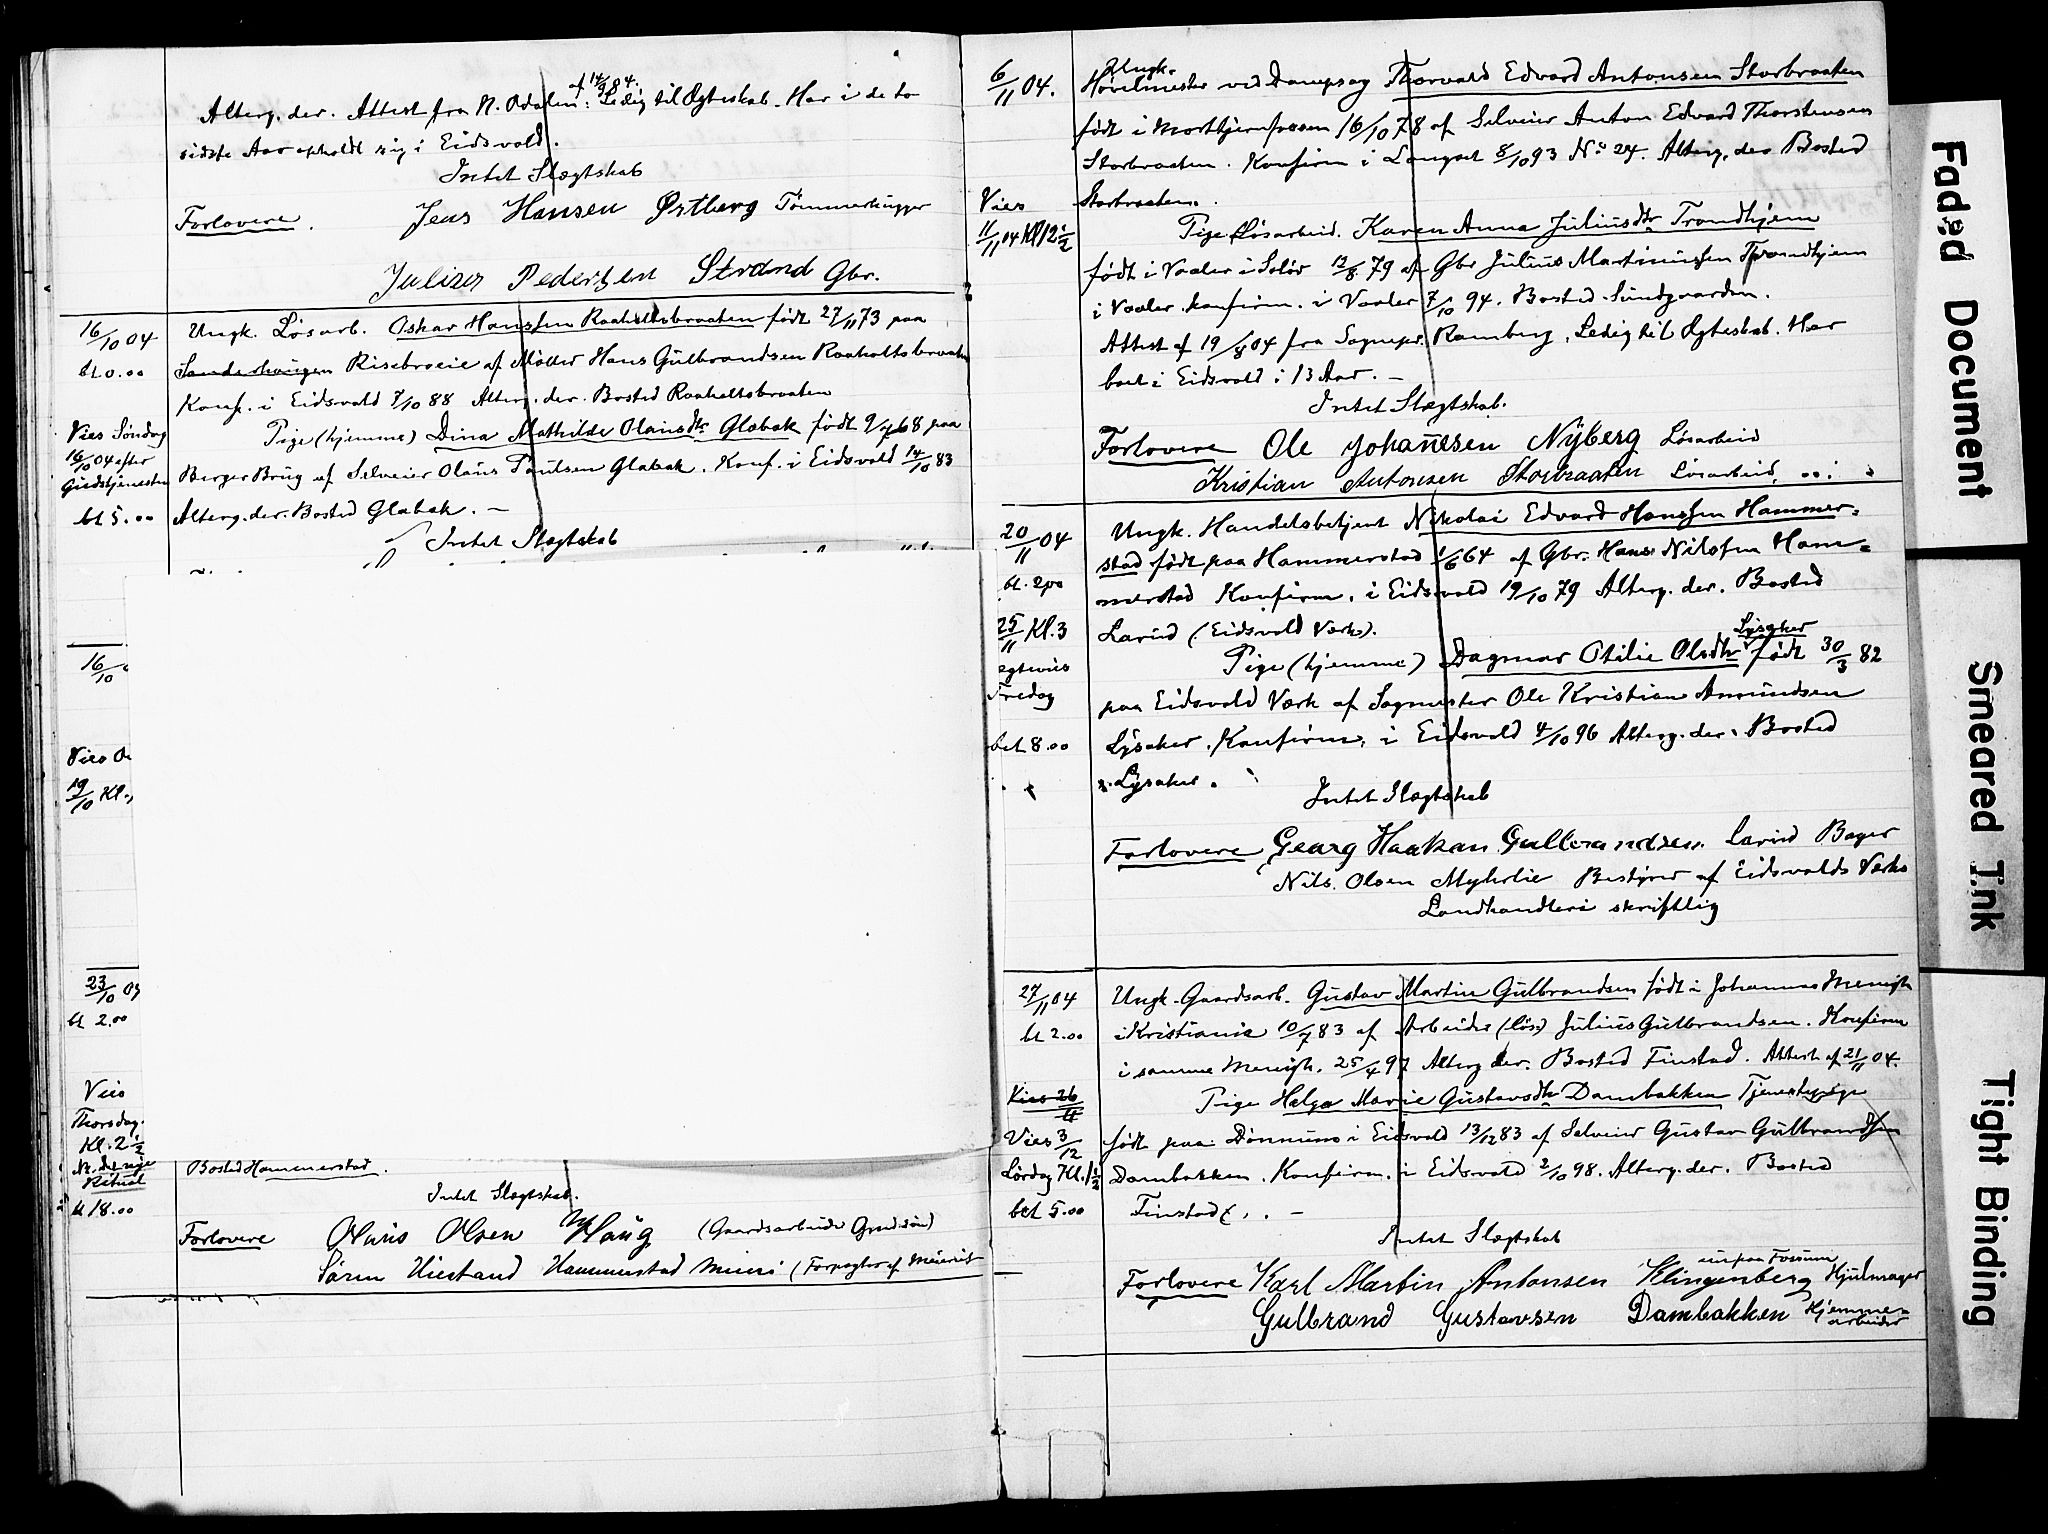 af 14/9 84.
Alterg. der. Attest fra N. Odalen: Ledig til Ægteskab. Har i de to
sidste Aar opholdt sig i Eidsvold.
Intet Slægtskab
Forlovere. Jens Hansen Østberg Tømmerhugger
Julius Pedersen Strand Gbr.
16/10 04 Ungk. Løsarb. Oskar Hanssen Raaholtsbraaten født 27/11 73 paa
bt 0.00 Sanderhaugen Risebroeie af Møller Hans Gulbrandsen Raaholtsbraaten
Konf. i Eidsvold 7/10 88 Alterg. der. Bosted Raaholtsbraaten
Vies Søndag Pige (hjemme) Dina Mathilde Olausdtr Glabak født 9/7 68 paa
16/10 04 efter
Gudstjenesten Berger Brug af Selveier Olaus Paulsen Glabak. Konf. i Eidsvold 14/10 83
bt 5.00 Alterg. der. Bosted Glabak. —
Intet Slægtskab
16/10
Vies
19/10 Kl.
23/10
bt 2.00
Vies
Thorsdag.
Kl. 2 1/2
Ritual
bt 18.00
Bosted Hammerstad.
Intet Slægtskab.
Forlovere Olaus Olsen Haug (Gaardsarbeider
Søren Hiestand Hammerstad Meieri (Forpagter af Meieriet
6/11 04. Ungk.
Høvelmester ved Dampsag Thorvald Edvard Antonsen Storbraaten
født i Morttjernfossen 16/10 78 af Selveier Anton Edvard Thorstensen
Storbraaten. Konfirm i Langset 8/10 93 No 24. Alterg. der Bosted
Vies Storbraaten.
11/11 04 Kl 12 1/2 Pige Løsarbeid. Karen Anna Juliusdtr Trondhjem
født i Vaaler i Solør 12/8 79 af Gbr Julius Martinussen Trondhjem
i Vaaler. konfirm. i Vaaler 7/10 94. Bosted Sundgaarden.
Attest af 19/8 04 fra Sognepr. Ramberg. Ledig til Ægteskab. Har
boet i Eidsvold i 13 Aar. —
Intet Slægtskab.
Forlovere Ole Johannesen Nyberg Løsarbeid
Kristian Antonsen Storbraaten Løsarbeid.
20/11 04 Ungk. Handelsbetjent Nikolai Edvard Hanssen Hammer-
stad født paa Hammerstad 1/6 64 af Gbr. Hans Nilssen Ham-
bt. 200 merstad Konfirm. i Eidsvold 19/10 79 Alterg. der. Bosted
25/11 Kl. 3 Lavind (Eidsvold Værk).
egtvies Pige (hjemme) Dagmar Otilie Olsdtr Lysaker født 30/3 82
Fredag paa Eidsvold Værk af Sagmester Ole Kristian Amundsen
bet 8.00 Lysaker. Konfirm. i Eidsvold 4/10 96 Alterg. der. Bosted
Lysaker.
Intet Slægtskab
Forlovere Georg Haakan Gulbrandsen Lavind Bager
Nils Olsen Myhrlie Bestyrer af Eidsvolds Værks
Landhandleri skriftlig
27/11 04 Ungk. Gaardsarb. Gustav Martin Gulbrandsen født i Johannes Menigh
bt 2.00 i Kristiania 10/7 83 af Arbeider (løs.) Julius Gulbrandsen. Konfirm
i samme Menigh. 25/4 97 Alterg der. Bosted Finstad. Attest af 21/11 04.
Vies 26/11 Pige Helga Marie Gustavsdtr Dambakken Tjenestepige
Vies 3/12 født paa Dønnum i Eidsvold 13/12 83 af Selveier Gustav Gulbrandsen
Lørdag Kl. 1 1/2 Dambakken. Konfirm. i Eidsvold 2/10 98. Alterg. der. Bosted
bet 5.00 Finstad. —
Intet Slægtskab
Forlovere Karl Martin Antonsen Klingenberg Hjulmager
Gulbrand Gustavsen Dambakken Hjemme-
arbeider
Faded Document
Smeared Ink
Tight Binding